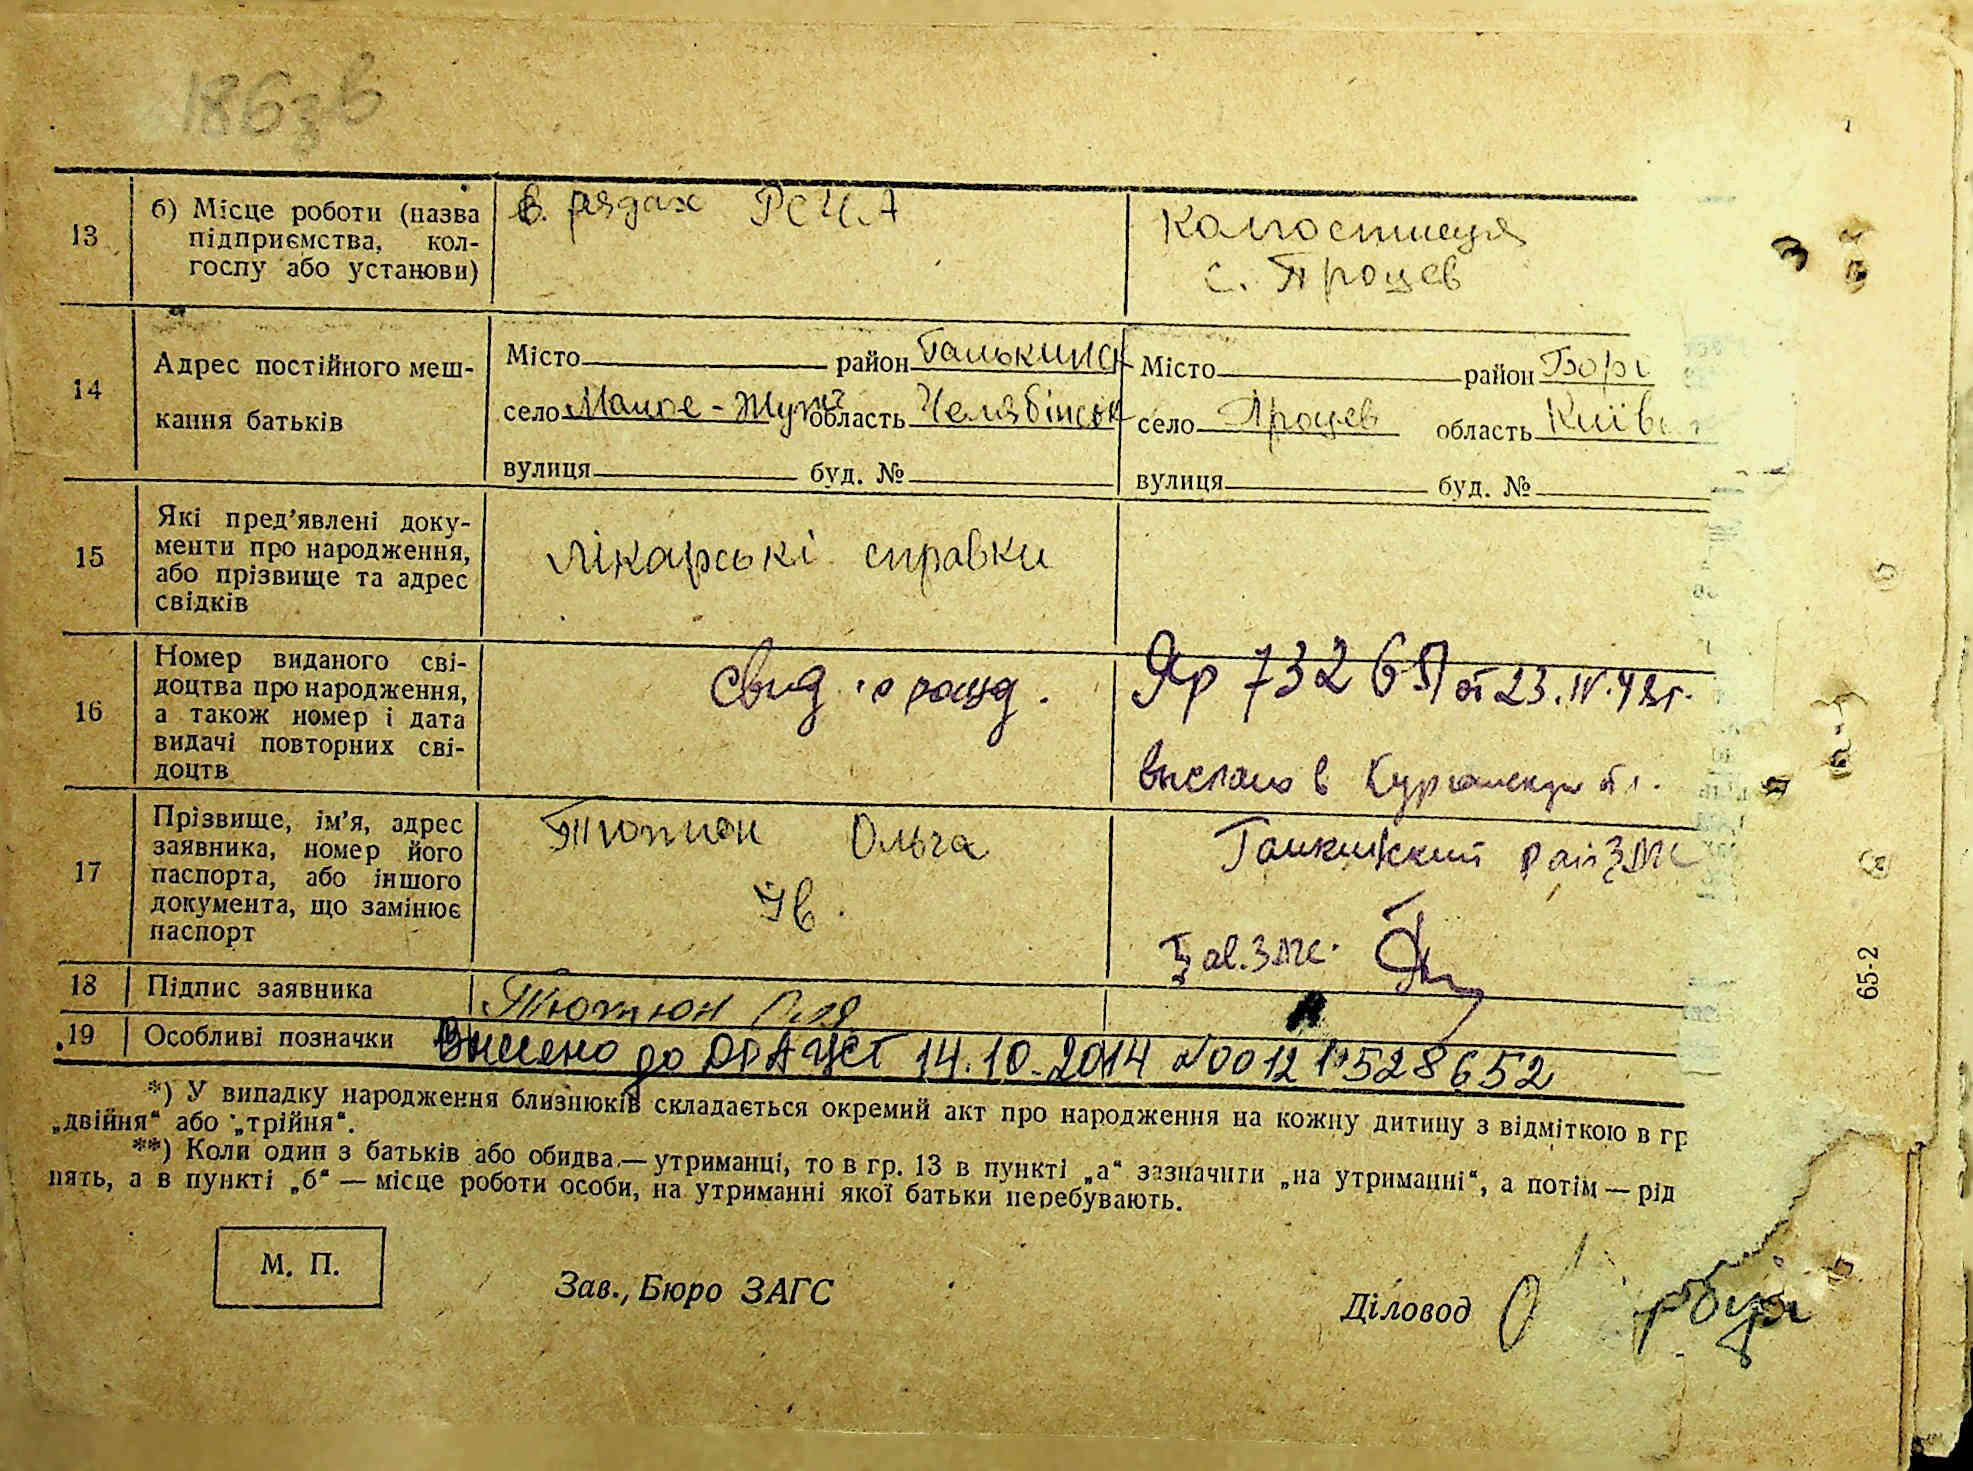 186зв
13
б) Місце роботи (назва
підприємства, кол-
госпу або установи)
в рядах РСЧА
Колгоспниця
с. Процев
14
Адрес постійного меш-
кання батьків
Місто район Галькинск
село Малое - область Челябінськ
вулиця буд. №
Місто район Бори
село Процев область Київ
вулиця буд. №
15
Які пред’явлені доку-
менти про народження,
або прізвище та адрес
свідків
лікарські справки
16
Номер виданого сві-
доцтва про народження,
а також номер і дата
видачі повторних сві-
доцтв
свид. о рожд.
от 23.IV.
выслано в Курганскую обл.
17
Прізвище, ім’я, адрес
заявника, номер його
паспорта, або іншого
документа, що замінює
паспорт
Тютюн Ольга
Ів.
рай ЗАГС
Зав. ЗАГС.
18
Підпис заявника
Тютюн Оля
19
Особливі позначки
Внесено до ДРАЦСГ 14.10.2014 №00121528652
*) У випадку народження близнюків складається окремий акт про народження на кожну дитину з відміткою в гр
„двійня“ або „трійня“.
**) Коли один з батьків або обидва — утриманці, то в гр. 13 в пункті „а“ зазначити „на утриманні“, а потім — рід
нять, а в пункті „б“ — місце роботи особи, на утриманні якої батьки перебувають.
М. П.
Зав., Бюро ЗАГС
Діловод
65-2